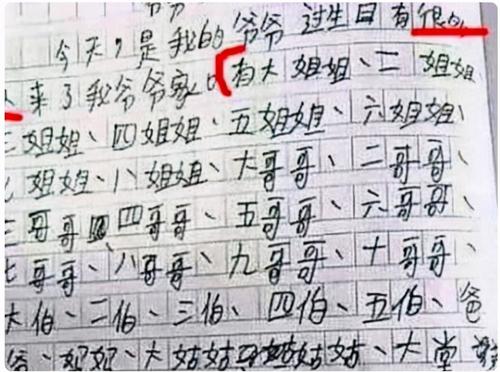 今天,是我的爷爷过生日有很多
人来了我爷爷家。有大姐姐、二姐姐
三姐姐、四姐姐、五姐姐、六姐姐、
七姐姐、八姐姐、大哥哥、二哥哥、
三哥哥、四哥哥、五哥哥、六哥哥、
七哥哥、八哥哥、九哥哥、十哥哥、
大伯、二伯、三伯、四伯、五伯、爸
爸、妈妈、大姑姑、姑姑、大堂